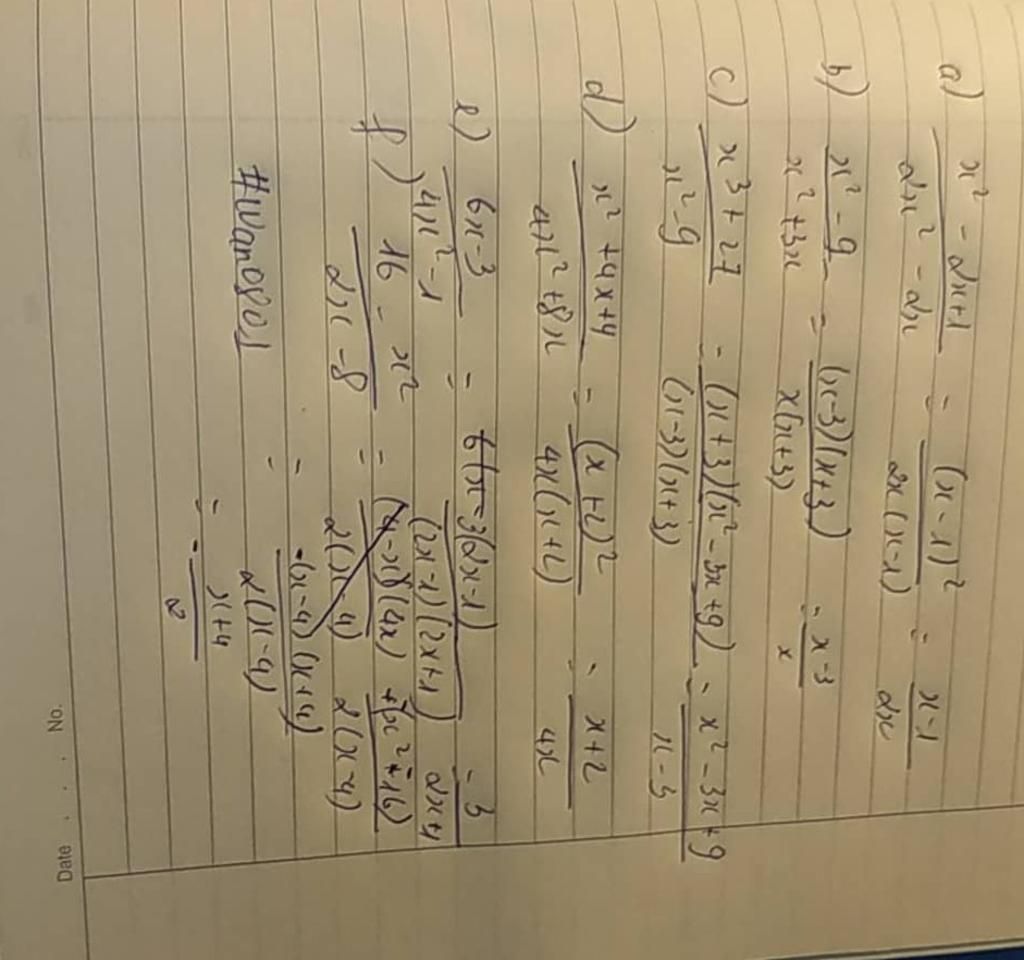 a) x² - 2x+1 / 2x² - 2x = (x-1)² / 2x(x-1) = x-1 / 2x
b) x² - 9 / x² + 3x = (x-3)(x+3) / x(x+3) = x-3 / x
c) x³ + 27 / x² - 9 = (x+3)(x² - 3x + 9) / (x-3)(x+3) = x² - 3x + 9 / x-3
d) x² + 4x + 4 / 4x² + 8x = (x+2)² / 4x(x+2) = x+2 / 4x
e) 6x-3 / 4x² - 1 = 3(2x-1) / (2x-1)(2x+1) = 3 / 2x+1
f) 16 - x² / 2x - 8 = (4-x)(4x) / 2(x-4) +(x² + 16) / 2(x-4)
= -(x-4)(x+4) / 2(x-4)
= - x+4 / 2
#wan0801
No.
Date